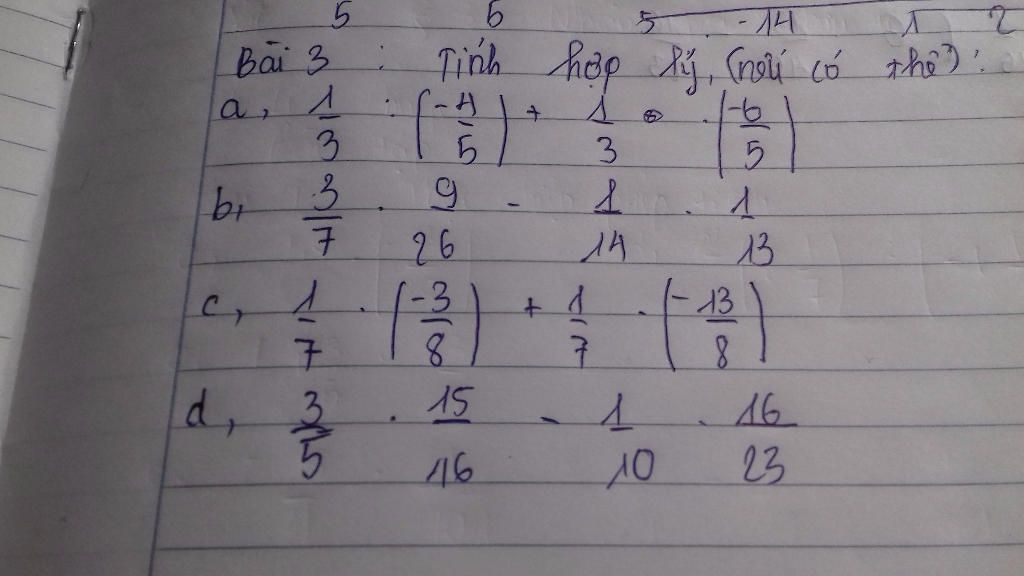 5 5 5 . -14 1 2
Bài 3 : Tính hợp lý, (nếu có thể) :
a, 1/3 : (-4/5) + 1/3 . (-6/5)
b, 3/7 . 9/26 - 1/14 . 1/13
c, 1/7 . (-3/8) + 1/7 . (-13/8)
d, 3/5 . 15/46 - 1/10 . 16/23